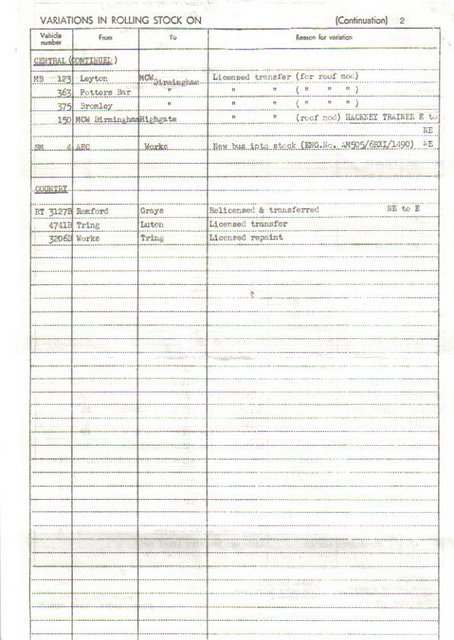 VARIATIONS IN ROLLING STOCK ON (Continuation) 2
Vehicle number From To Reason for variation
CENTRAL (CONTINUED)
MB 123 Leyton MCW Birmingham Licensed transfer (for roof mod)
363 Potters Bar " " " ( " " " )
375 Bromley " " " ( " " " )
150 MCW Birmingham Highgate " " (roof mod) HACKNEY TRAINER E to
NE
SM 4 AEC Works New bus into stock (ENG.No. AM505/6RXI/1490) NE
COUNTRY
RT 3127B Romford Grays Relicensed & transferred NE to E
4741B Tring Luton Licensed transfer
3206B Works Tring Licensed repaint